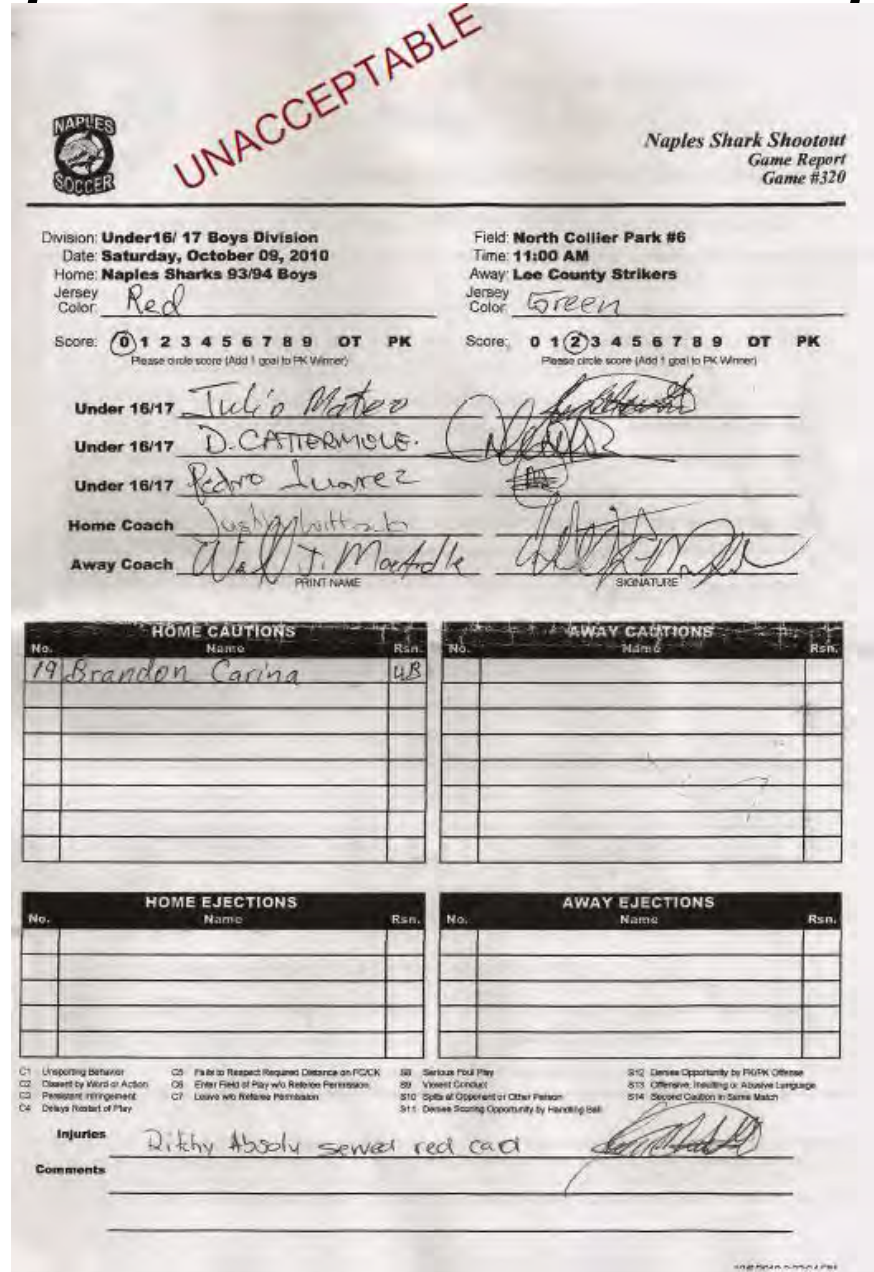 UNACCEPTABLE
NAPLES
SOCCER
Naples Shark Shootout
Game Report
Game #320
Division: Under16/ 17 Boys Division
Date: Saturday, October 09, 2010
Home: Naples Sharks 93/94 Boys
Jersey Color: Red
Field: North Collier Park #6
Time: 11:00 AM
Away: Lee County Strikers
Jersey Color: Green
Score: 0 1 2 3 4 5 6 7 8 9 OT PK
Please circle score (Add 1 goal to PK Winner)
Score: 0 1 2 3 4 5 6 7 8 9 OT PK
Please circle score (Add 1 goal to PK Winner)
Under 16/17 Julio Mateo
Under 16/17 D. CATTERMOLE.
Under 16/17 Pedro Juarez
Home Coach
Away Coach
PRINT NAME SIGNATURE
HOME CAUTIONS
No. Name Rsn.
19 Brandon Carina UB
AWAY CAUTIONS
No. Name Rsn.
HOME EJECTIONS
No. Name Rsn.
AWAY EJECTIONS
No. Name Rsn.
C1 Unsporting Behavior
C2 Dissent by Word or Action
C3 Persistent Infringement
C4 Delays Restart of Play
C5 Fails to Respect Required Distance on FC/CK
C6 Enter Field of Play w/o Referee Permission
C7 Leave w/o Referee Permission
S8 Serious Foul Play
S9 Violent Conduct
S10 Spits at Opponent or Other Person
S11 Denies Scoring Opportunity by Handling Ball
S12 Denies Opportunity by FK/PK Offense
S13 Offensive, Insulting or Abusive Language
S14 Second Caution in Same Match
Injuries served red card
Comments